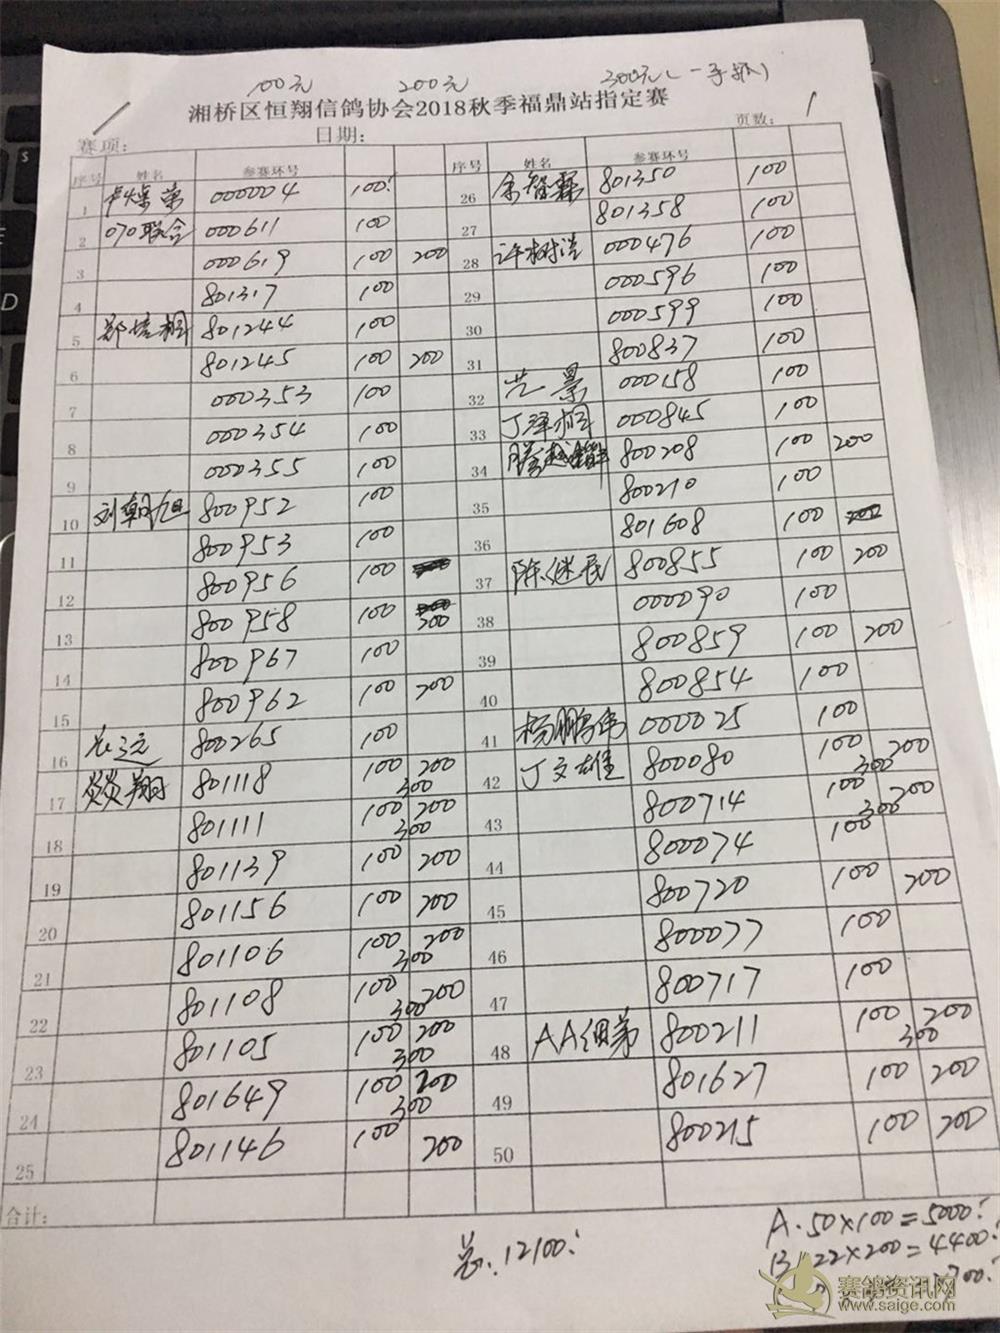 100元 200元 300元(一字孤)
湘桥区恒翔信鸽协会2018秋季福鼎站指定赛
赛项: 日期: 页数: 1
序号 姓名 参赛环号 序号 姓名 参赛环号
1 000004 100
2 070联合 000611 100
3 000619 100 200
4 801317 100
5 郑培桐 801244 100
6 801245 100 200
7 000353 100
8 000354 100
9 000355 100
10 刘朝旭 800952 100
11 800953 100
12 800956 100
13 800958 100 200
14 800967 100
15 800962 100 200
16 800265 100
17 焱焱翔 801118 100 200 300
18 801111 100 200 300
19 801139 100 200
20 801156 100 200
21 801106 100 200 300
22 801108 100 200 300
23 801105 100 200 300
24 801649 100 200 300
25 801146 100 200
26 余智霖 801350 100
27 801358 100
28 许树浩 000476 100
29 000596 100
30 000599 100
31 800837 100
32 艺景 000158 100
33 丁泽桐 000845 100
34 800208 100 200
35 800210 100
36 801608 100
37 陈继民 800855 100 200
38 000090 100
39 800859 100 200
40 800854 100
41 杨鹏伟 000025 100
42 丁文雄 800080 100 200 300
43 800714 100 200 300
44 800074 100
45 800720 100 200
46 800077 100
47 800717 100
48 AA细弟 800211 100 200 300
49 801627 100 200
50 800215 100 200
合计:
总:12100:
A.50×100=5000:
B 22×200=4400:
赛鸽资讯网
www.saige.com